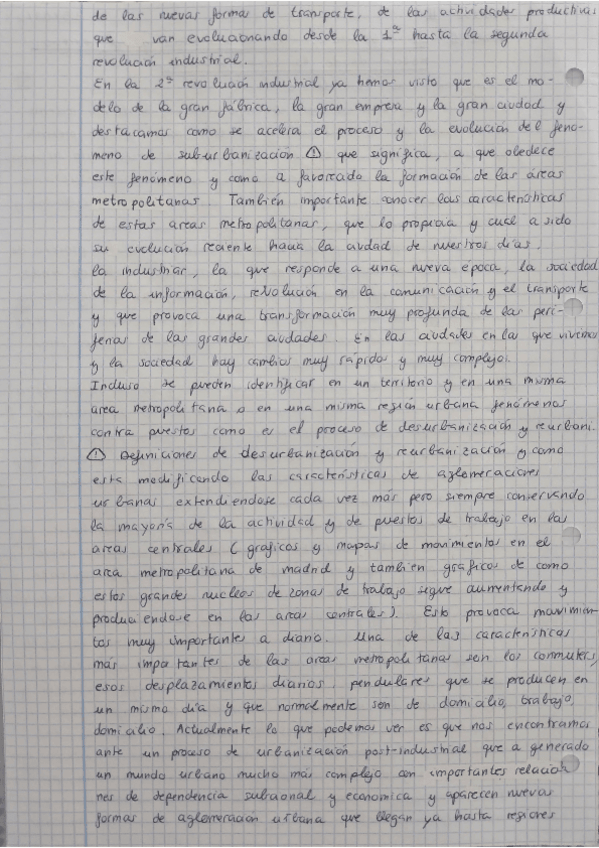 de las nuevas formas de transporte, de las actividades productivas
que van evolucionando desde la 1ª hasta la segunda
revolución industrial.
En la 2ª revolución industrial ya hemos visto que es el mo-
delo de la gran fábrica, la gran empresa y la gran ciudad y
destacamos como se acelera el proceso y la evolución del fenó-
meno de suburbanización ⚠ que significa, a que obedece
este fenómeno y como a favorecado la formación de las áreas
metropolitanas. También importante conocer las características
de estas areas metropolitanas, que lo propicia y cual a sido
su evolución reciente hacia la ciudad de nuestros días.
la industrial, la que responde a una nueva época, la sociedad
de la información, revolución en la comunicación y el transporte
y que provoca una transformación muy profunda de las peri-
ferias de las grandes ciudades. En las ciudades en las que vivimos
y la sociedad hay cambios muy rápidos y muy complejos.
Incluso se pueden identificar en un territorio y en una misma
area metropolitana o en una misma región urbana fenómenos
contra puestos como es el proceso de desurbanización y reurbani.
⚠ Definiciones de desurbanización y reurbanización y como
esta modificando las características de aglomeraciones
urbanas extendiendose cada vez más pero siempre conservando
la mayoría de la actividad y de puestos de trabajo en las
areas centrales (graficos y mapas de movimientos en el
area metropolitana de madrid y tambien graficos de como
estos grandes nucleos de zonas de trabajo sigue aumentando y
produciendose en las areas centrales). Esto provoca movimien-
tos muy importantes a diario. Una de las características
más importantes de las areas metropolitanas son los commuters,
esos desplazamientos diarios, pendulares que se producen en
un mismo día y que normalmente son de domicilio, trabajo,
domicilio. Actualmente lo que podemos ver es que nos encontramos
ante un proceso de urbanización post-industrial que a generado
un mundo urbano mucho más complejo con importantes relacio-
nes de dependencia y economica y aparecen nuevas
formas de aglomeración urbana que llegan ya hasta regiones